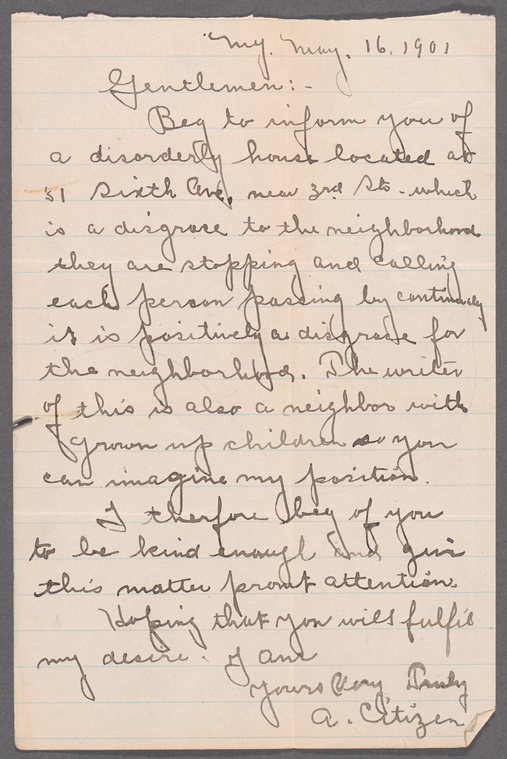 Ny. May. 16. 1901
Gentlemen:-
Beg to inform you of
a disorderly house located at
31 Sixth Ave, near 3rd Sts. which
is a disgrase to the neighborhood
they are stopping and calling
each person passing by continualy
it is positively a disgrase for
the neighborhood. The writer
of this is also a neighbor with
grown up children so you
can imagine my position.
I therfore beg of you
to be kind enough and give
this matter promt attention
Hoping that you will fulfil
my desire. I am
Yours Very Truly
A. Citizen